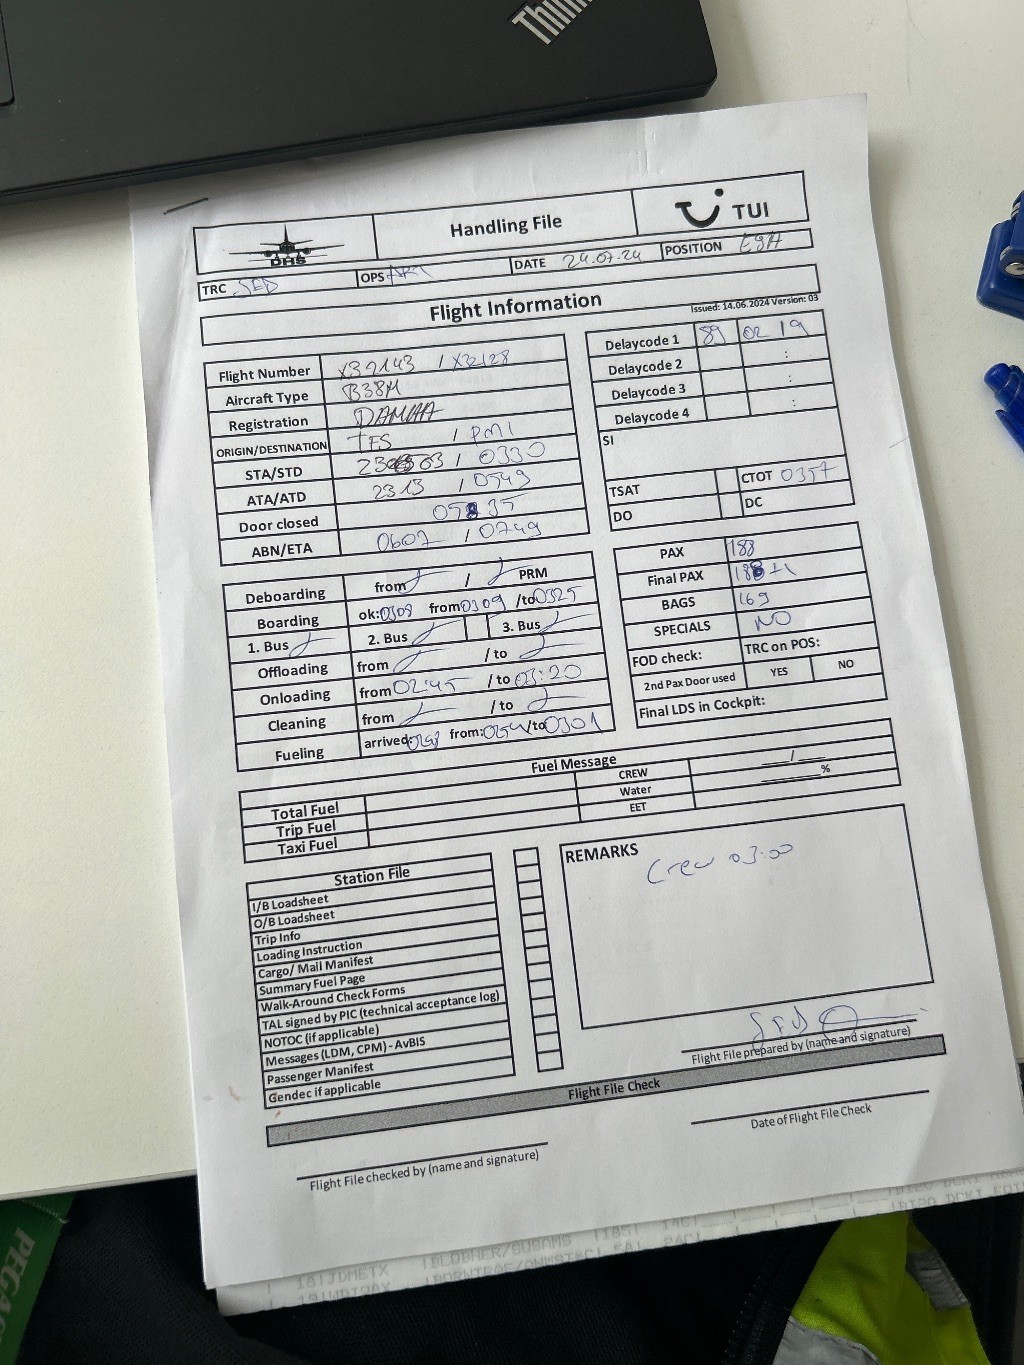 Think
DHS
Handling File
TUI
TRC SED
OPS
DATE 24.07.24
POSITION E9A
Flight Information
Issued: 14.06.2024 Version: 03
Flight Number X32143 / X32128
Aircraft Type B38M
Registration DAMAA
ORIGIN/DESTINATION TFS / PMI
STA/STD / 0330
ATA/ATD 2313 / 0549
Door closed
ABN/ETA 0607 / 0749
Delaycode 1 89 02 19
Delaycode 2 :
Delaycode 3 :
Delaycode 4 :
SI
TSAT CTOT 0357
DO DC
Deboarding from / PRM
Boarding ok:0308 from0309 /to0325
1. Bus 2. Bus 3. Bus
Offloading from /to
Onloading from 02:45 /to 03:20
Cleaning from /to
Fueling arrived: from: /to0301
PAX 188
Final PAX
BAGS 169
SPECIALS NO
FOD check: TRC on POS:
2nd Pax Door used YES NO
Final LDS in Cockpit:
Fuel Message
Total Fuel CREW __/__
Trip Fuel Water ______%
Taxi Fuel EET
Station File
I/B Loadsheet
O/B Loadsheet
Trip Info
Loading Instruction
Cargo/ Mail Manifest
Summary Fuel Page
Walk-Around Check Forms
TAL signed by PIC (technical acceptance log)
NOTOC (if applicable)
Messages (LDM, CPM) - AvBIS
Passenger Manifest
Gendec if applicable
REMARKS
Crew 03:00
Flight File prepared by (name and signature)
Flight File Check
Flight File checked by (name and signature)
Date of Flight File Check